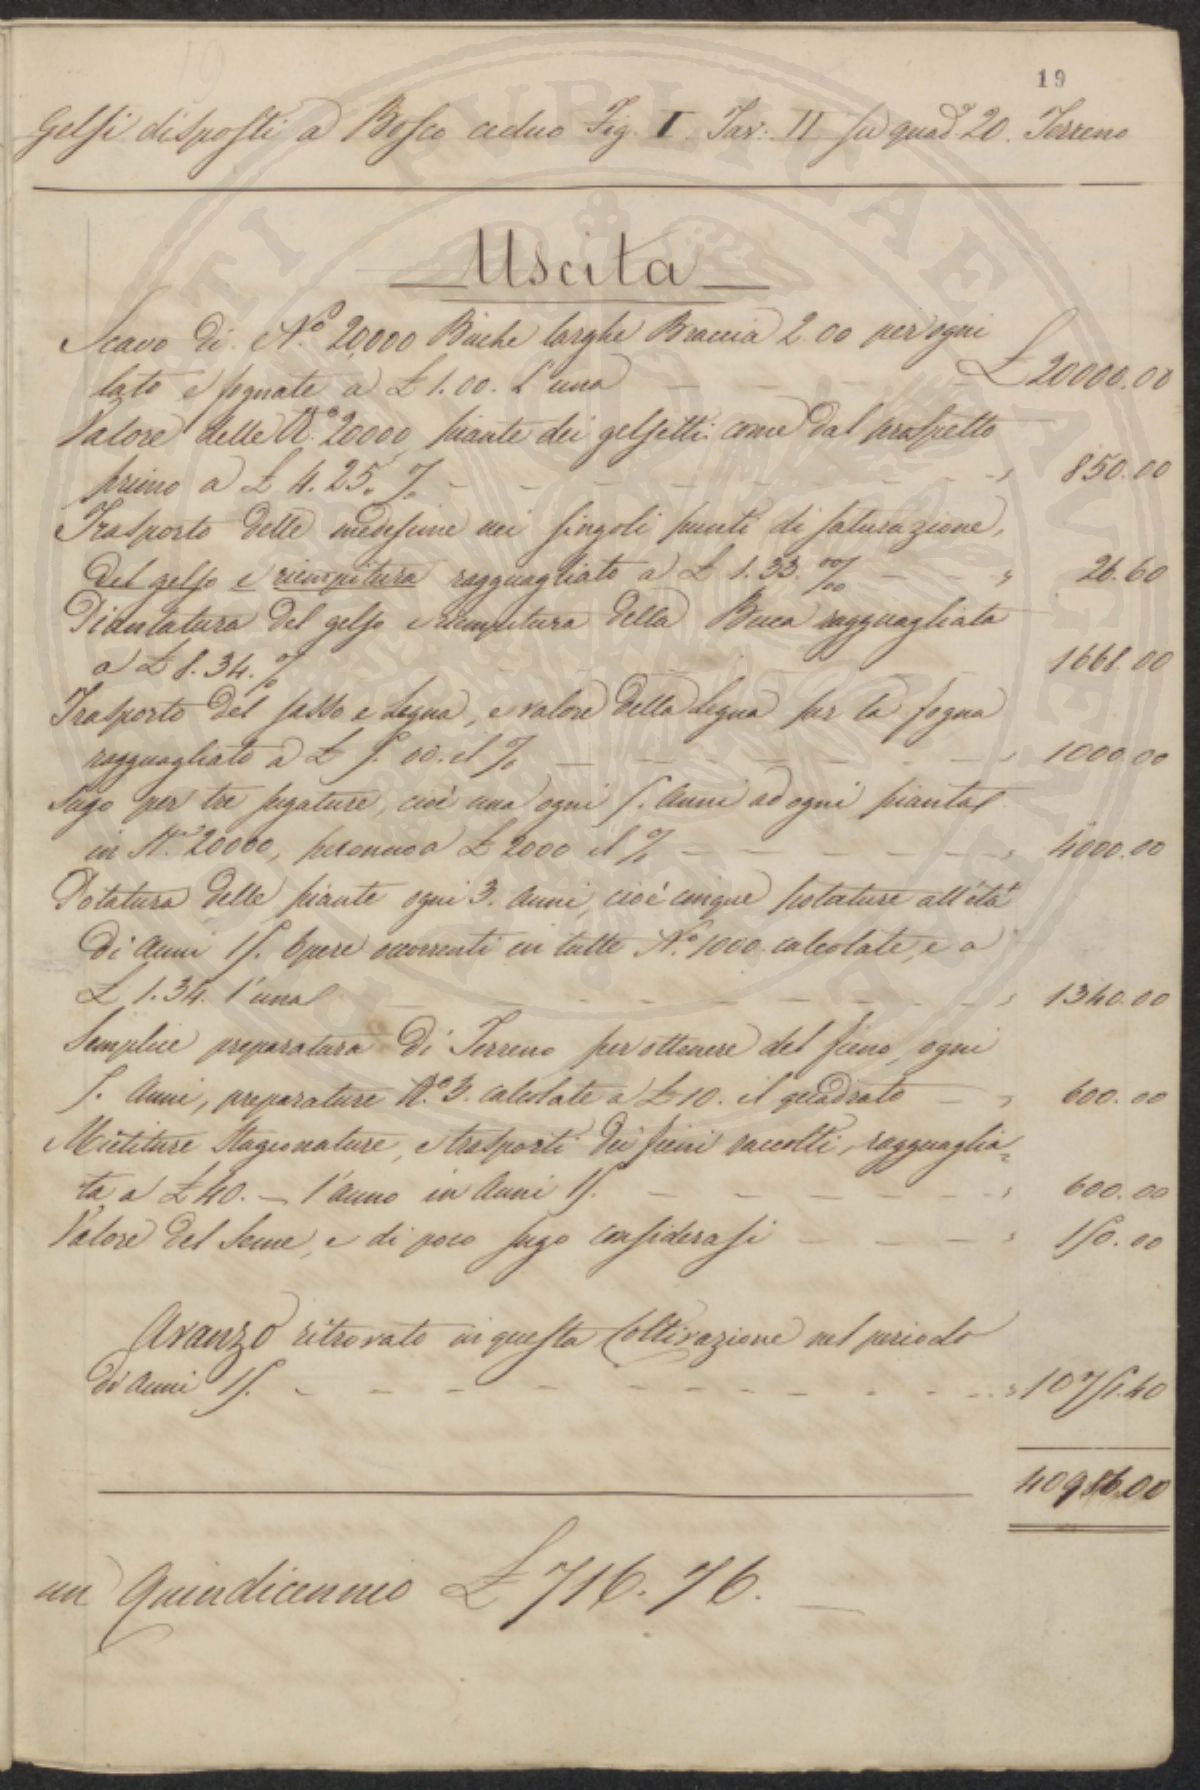 19
Gelsi disposti a Bosco ceduo Fig. I. Tav: II su quad.ᵗⁱ 20. Terreno
Uscita
Scavo di N.º 20,000 Buche larghe Braccia 2.00 per ogni
lato e fognate a £ 1.00. l'una — — — — £ 20000.00
Valore delle N.º 20000, piante dei gelsetti come dal prospetto
primo a £ 4.25. % — — — — — — „ 850.00
Trasporto delle medesime nei singoli punti di
del gelso e riempitura ragguagliato a £ 1.33. ‰ — — — „ 26.60
Piantatura del gelso e riempitura della Buca ragguagliata
a £ 8.34. % — — — — — 1668.00
Trasporto del sasso e Legna, e valore della Legna per la fogna
ragguagliato a £ 5.00. il % — — — — — „ 1000.00
Sugo per tre sugature, cioè una ogni 5. Anni ad ogni pianta
in N.º 20000, £ 2000 il % — — — — — „ 4000.00
Potatura delle piante ogni 3. Anni, cioè cinque potature all'età
di Anni 15. Opere occorrenti in tutte N.º 1000. calcolate, e a
£ 1.34. l'una — — — — — — — „ 1340.00
Semplice preparatura di Terreno per ottenere del fieno, ogni
5. Anni, preparature N.º 3. calcolate a £ 10. il quadrato — „ 600.00
Mietiture Stagionature, e trasporti dei fieni raccolti, ragguaglia=
ta a £ 40. — l'anno in Anni 15. — — — — — „ 600.00
Valore del Seme, e di poco sugo considerasi — — — „ 150.00
Avanzo ritrovato in questa Coltivazione nel periodo
di Anni 15. — — — — — — — — „ 10751.40
40986.00
un Quindicennio £ 716.76. —